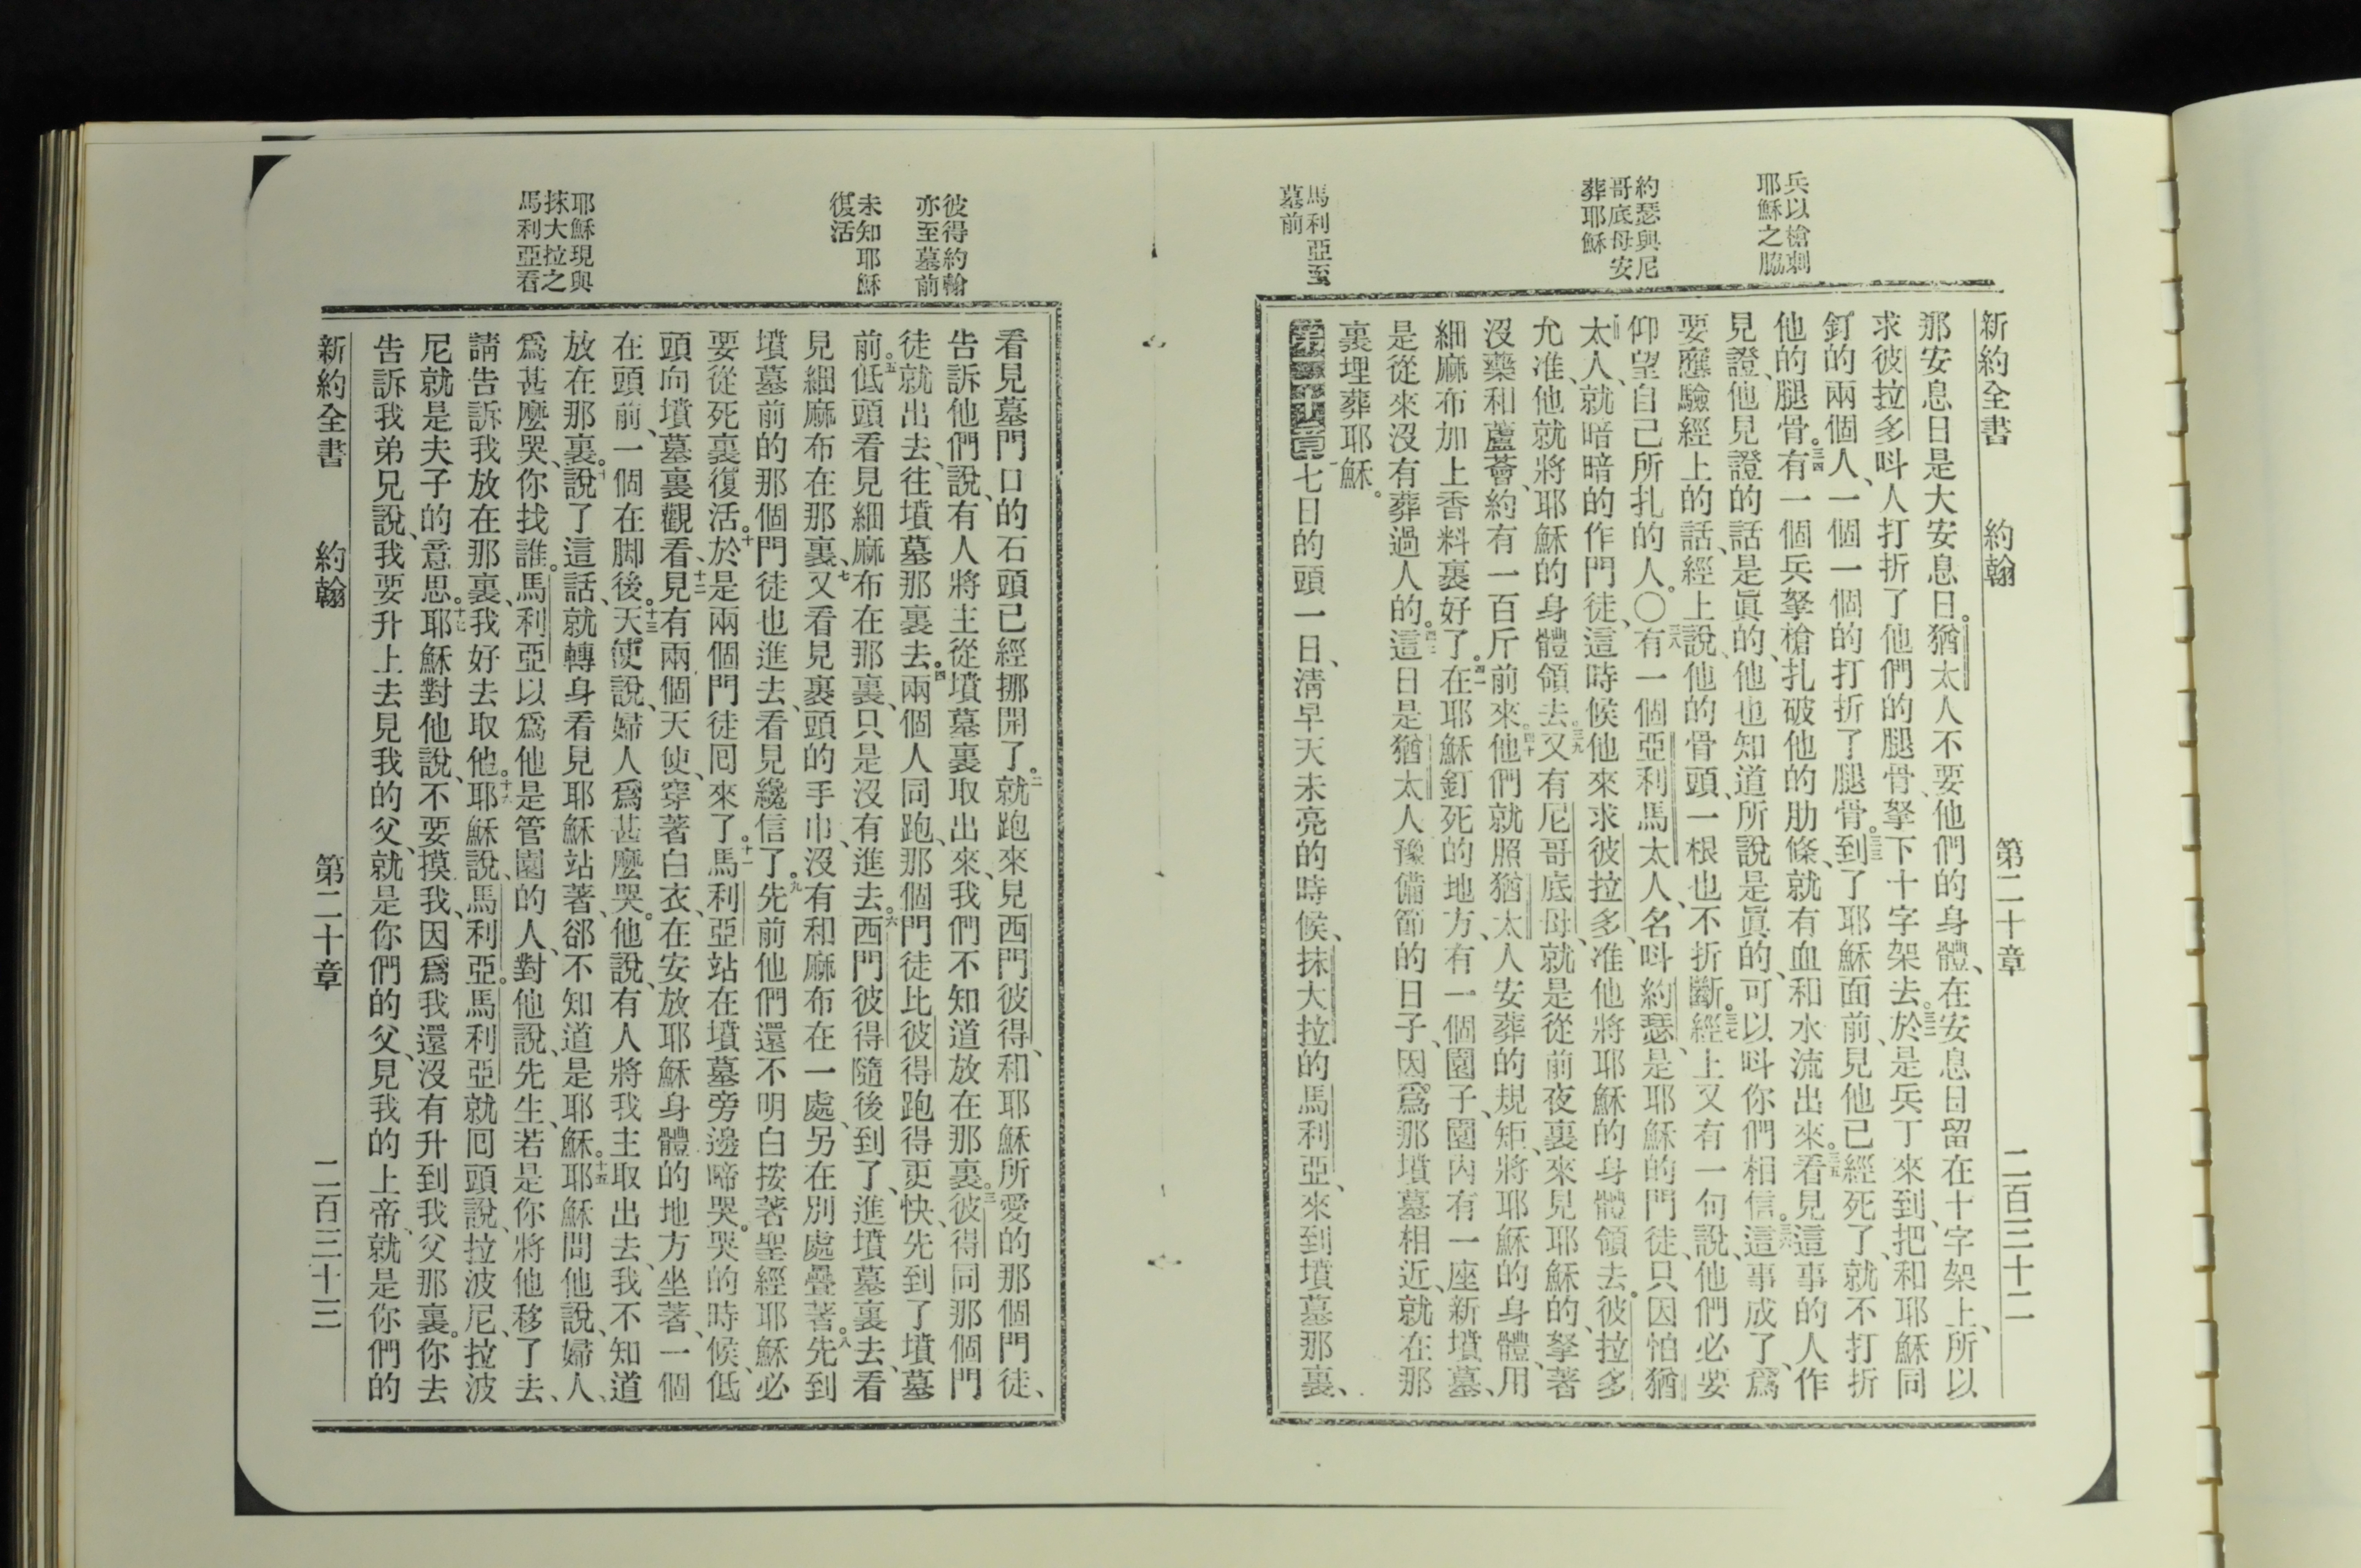 兵以槍刺
耶穌之脇
約瑟與尼
哥底母安
葬耶穌
馬利亞至
墓前
新約全書 約翰 第二十章 二百三十二
那安息日是大安息日。猶太人不要他們的身體、在安息日留在十字架上、所以
求彼拉多呌人打折了他們的腿骨、拏下十字架去。三二於是兵丁來到、把和耶穌同
釘的兩個人、一個一個的打折了腿骨。三三到了耶穌面前、見他已經死了、就不打折
他的腿骨。三四有一個兵拏槍扎破他的肋條、就有血和水流出來。三五看見這事的人作
見證、他見證的話是眞的、他也知道所說是眞的、可以呌你們相信。三六這事成了、爲
要應驗經上的話、經上說、他的骨頭、一根也不折斷。三七經上又有一句說、他們必要
仰望自己所扎的人。〇三八有一個亞利馬太人、名呌約瑟、是耶穌的門徒、只因怕猶
太人、就暗暗的作門徒、這時候他來求彼拉多、准他將耶穌的身體領去。彼拉多
允准、他就將耶穌的身體領去。三九又有尼哥底母、就是從前夜裏來見耶穌的、拏著
沒藥和蘆薈、約有一百斤前來。四十他們就照猶太人安葬的規矩、將耶穌的身體、用
細麻布加上香料裹好了。四一在耶穌釘死的地方、有一個園子、園內有一座新墳墓、
是從來沒有葬過人的。四二這日是猶太人豫備節的日子、因爲那墳墓相近、就在那
裏埋葬耶穌。
第二十章七日的頭一日、淸早天未亮的時候、抹大拉的馬利亞、來到墳墓那裏、
彼得約翰
亦至墓前
未知耶穌
復活
耶穌現與
抹大拉之
馬利亞看
看見墓門口的石頭已經挪開了。二就跑來見西門彼得、和耶穌所愛的那個門徒、
告訴他們說、有人將主從墳墓裏取出來、我們不知道放在那裏。三彼得同那個門
徒就出去、往墳墓那裏去。四兩個人同跑、那個門徒比彼得跑得更快、先到了墳墓
前。五低頭看見細麻布在那裏、只是沒有進去。六西門彼得隨後到了、進墳墓裏去、看
見細麻布在那裏、七又看見裹頭的手巾、沒有和麻布在一處、另在別處疊著。八先到
墳墓前的那個門徒也進去、看見纔信了。九先前他們還不明白按著聖經耶穌必
要從死裏復活。十於是兩個門徒囘來了。十一馬利亞站在墳墓旁邊啼哭。哭的時候、低
頭向墳墓裏觀看、十二見有兩個天使、穿著白衣、在安放耶穌身體的地方坐著、一個
在頭前、一個在脚後。十三天使說、婦人爲甚麼哭。他說、有人將我主取出去、我不知道
放在那裏。十四說了這話、就轉身看見耶穌站著、卻不知道是耶穌。十五耶穌問他說、婦人、
爲甚麼哭、你找誰。馬利亞以爲他是管園的人、對他說、先生、若是你將他移了去、
請告訴我放在那裏、我好去取他。十六耶穌說、馬利亞。馬利亞就囘頭說、拉波尼、拉波
尼就是夫子的意思。十七耶穌對他說、不要摸我、因爲我還沒有升到我父那裏。你去
告訴我弟兄說、我要升上去見我的父、就是你們的父、見我的上帝、就是你們的
新約全書 約翰 第二十章 二百三十三